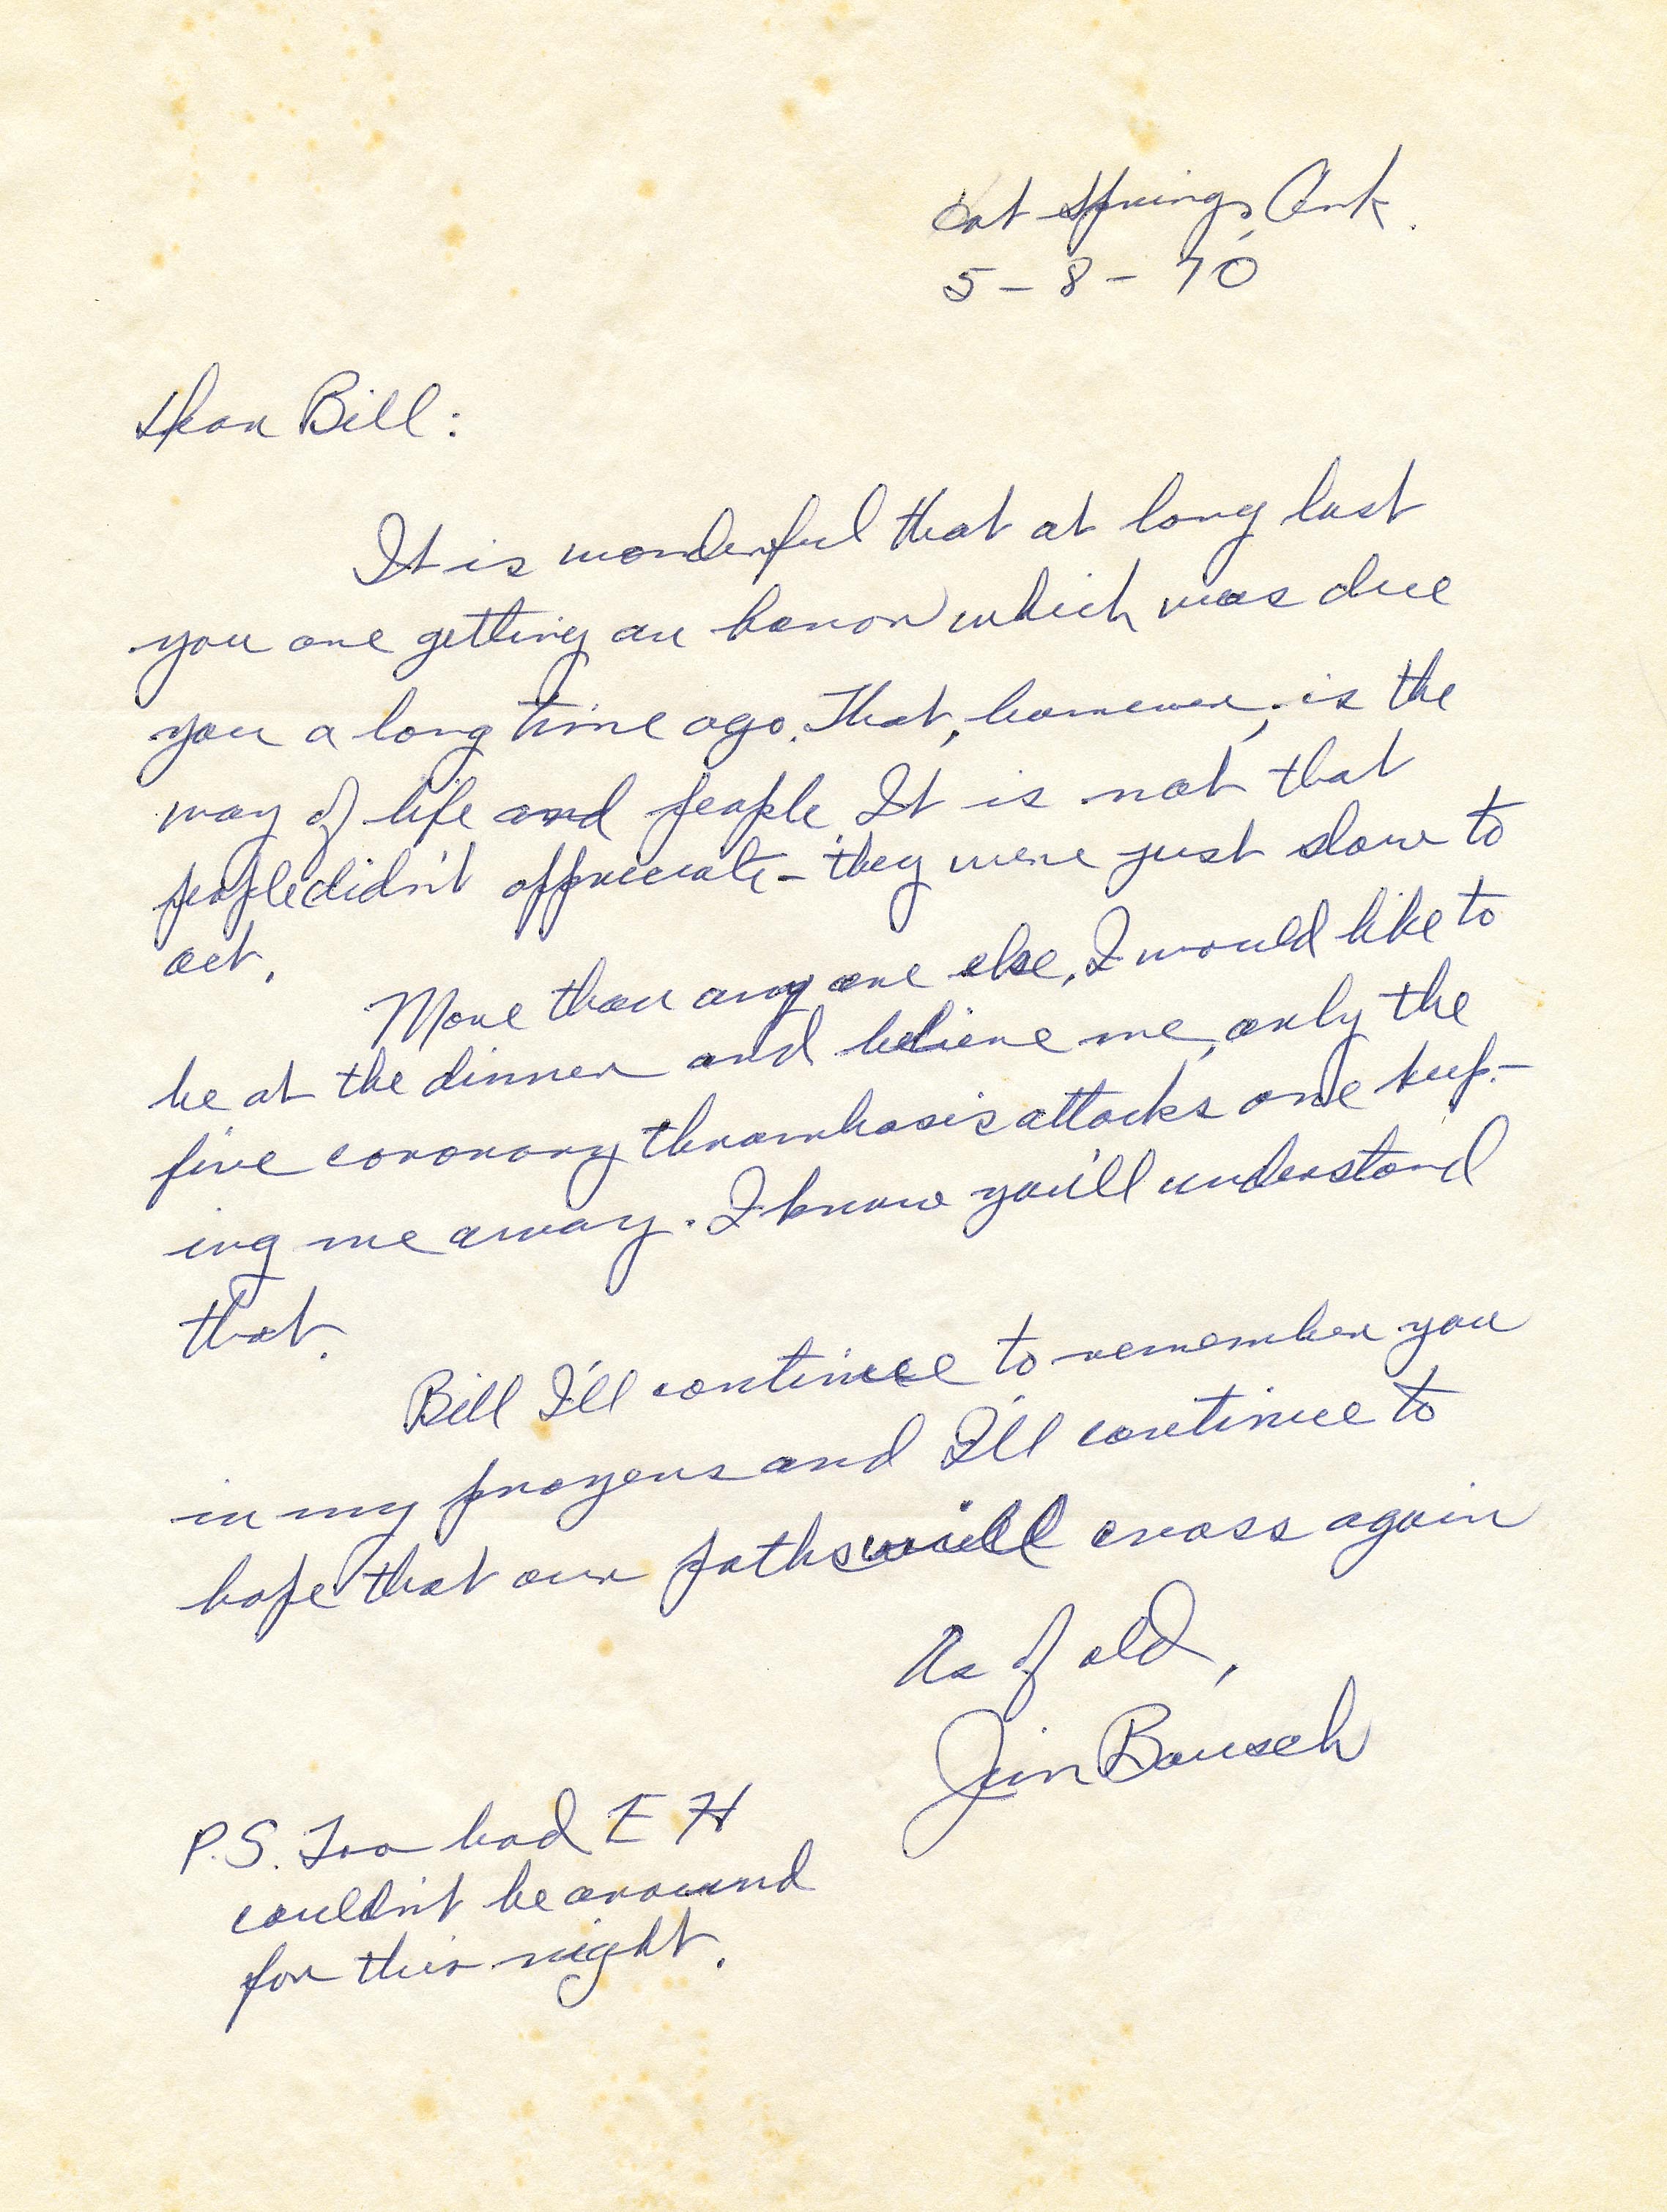 Hot Springs, Ark.
5-8-70
Dear Bill:
It is wonderful that at long last
you are getting an honor which was due
you a long time ago. That, however, is the
way of life and people. It is not that
people didn't appreciate - they were just slow to
act.
More than any one else, I would like to
be at the dinner and believe me, only the
five coronary thrombosis attacks are keep-
ing me away. I know you'll understand
that.
Bill I'll continue to remember you
in my prayers and I'll continue to
hope that our paths will cross again
As of old,
Jim Bausch
P.S. Too bad E H
couldn't be around
for this night.